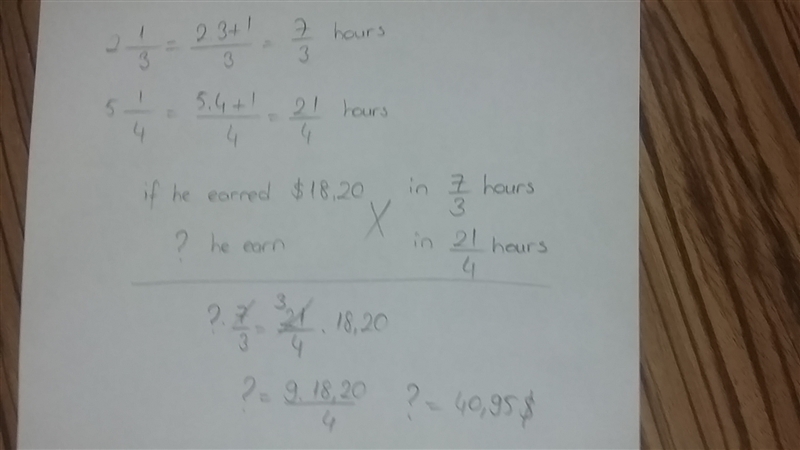 2 1/3 = 2 3+1/3 = 7/3 hours
5 1/4 = 5.4+1/4 = 21/4 hours
if he earred $18,20 in 7/3 hours
X
? he earn in 21/4 hours
?. 7/3 = 3 21/4 . 18,20
? = 9.18,20/4 ? = 40,95$